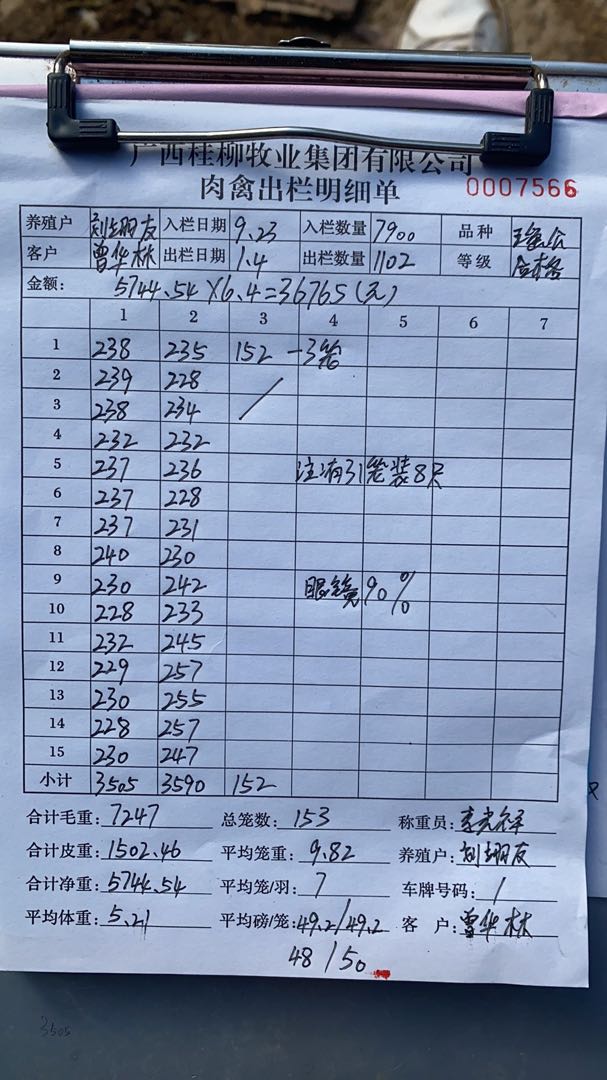 广西桂柳牧业集团有限公司
肉禽出栏明细单 0007566
养殖户 刘朋友 入栏日期 9.23 入栏数量 7900 品种
客户 曾华林 出栏日期 1.4 出栏数量 1102 等级 合格
金额: 5744.54×6.4=36765(元)
1 2 3 4 5 6 7
1 238 235 152 -3笼
2 239 228
3 238 234
4 232 232
5 237 236 注:有31笼装8只
6 237 228
7 237 231
8 240 230
9 230 242 眼镜90%
10 228 233
11 232 245
12 229 257
13 230 255
14 228 257
15 230 247
小计 3505 3590 152
合计毛重: 7247 总笼数: 153 称重员:
合计皮重: 1502.46 平均笼重: 9.82 养殖户: 刘朋友
合计净重: 5744.54 平均笼/羽: 7 车牌号码: /
平均体重: 5.21 平均磅/笼: 49.2/49.2 客户: 曾华林
48/50
3505